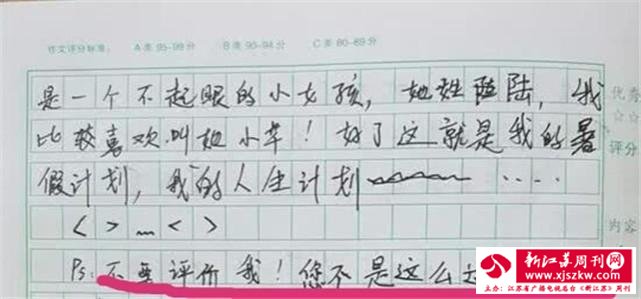 作文评分标准: A类 95-99分 B类 90-94分 C类 80-89分
是一个不起眼的小女孩，她姓陆，我
比较喜欢叫她小草！好了这就是我的暑
假计划，我的人生计划 ····
< > … < >
Ps: 不要评价我！您不是这么过
优秀
☆☆
评分
内容
新江苏周刊网
www.xjszkw.com
主办：江苏省广播电视总台《新江苏》周刊